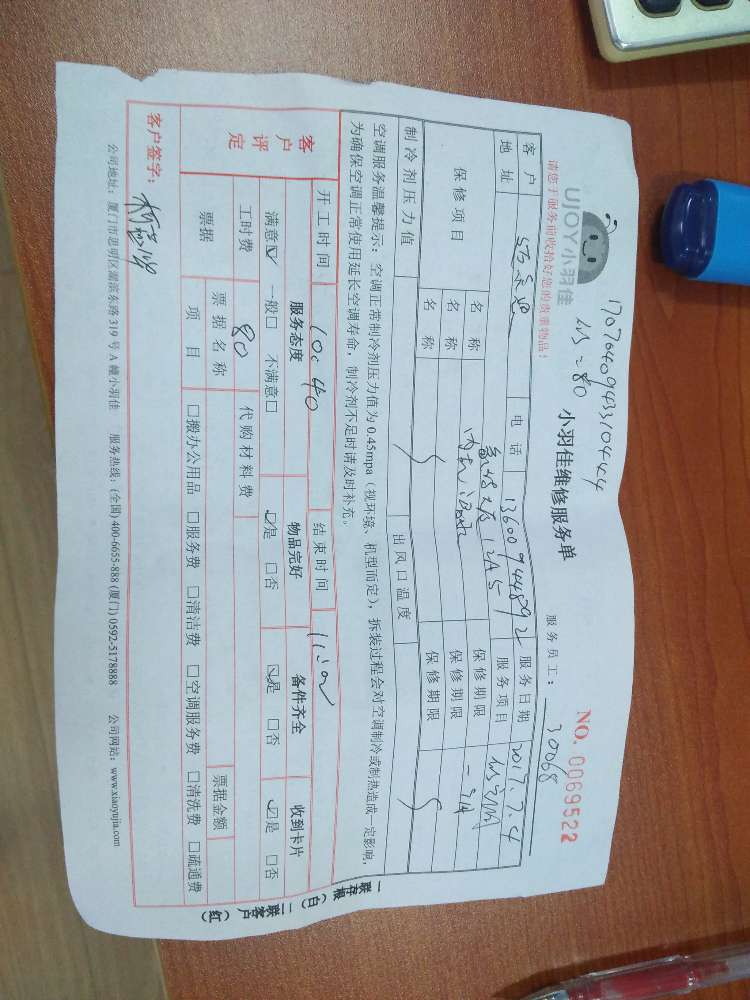 17076409433104424
=80
UJOY小羽佳
小羽佳维修服务单
NO. 0069522
请您于服务前收拾好您的贵重物品！
服务员工： 30068
客户 电话 13600944892 服务日期 2017.7.4
地址 12A5 服务项目
保修项目 名称 保修期限
名称 保修期限 一个月
名称 保修期限
制冷剂压力值 出风口温度
空调服务温馨提示：空调正常制冷剂压力值为 0.45mpa（视环境、机型而定），拆装过程会对空调制冷或制热造成一定影响，
为确保空调正常使用延长空调寿命，制冷剂不足时请及时补充。
开工时间 10:40 结束时间
客户评定 服务态度 物品完好 备件齐全 收到卡片
满意☑ 一般□ 不满意□ ☑是 □否 ☑是 □否 ☑是 □否
工时费 80 代购材料费
票据 票据名称 票据金额
项目 □搬办公用品 □服务费 □清洁费 □空调服务费 □清洗费 □疏通费
客户签字：
公司地址：厦门市思明区湖滨东路 319 号 A 幢小羽佳 服务热线：(全国) 400-6655-888 (厦门) 0592-5178888 公司网站：www.xiaoyujia.com
一联存根（白） 二联客户（红）